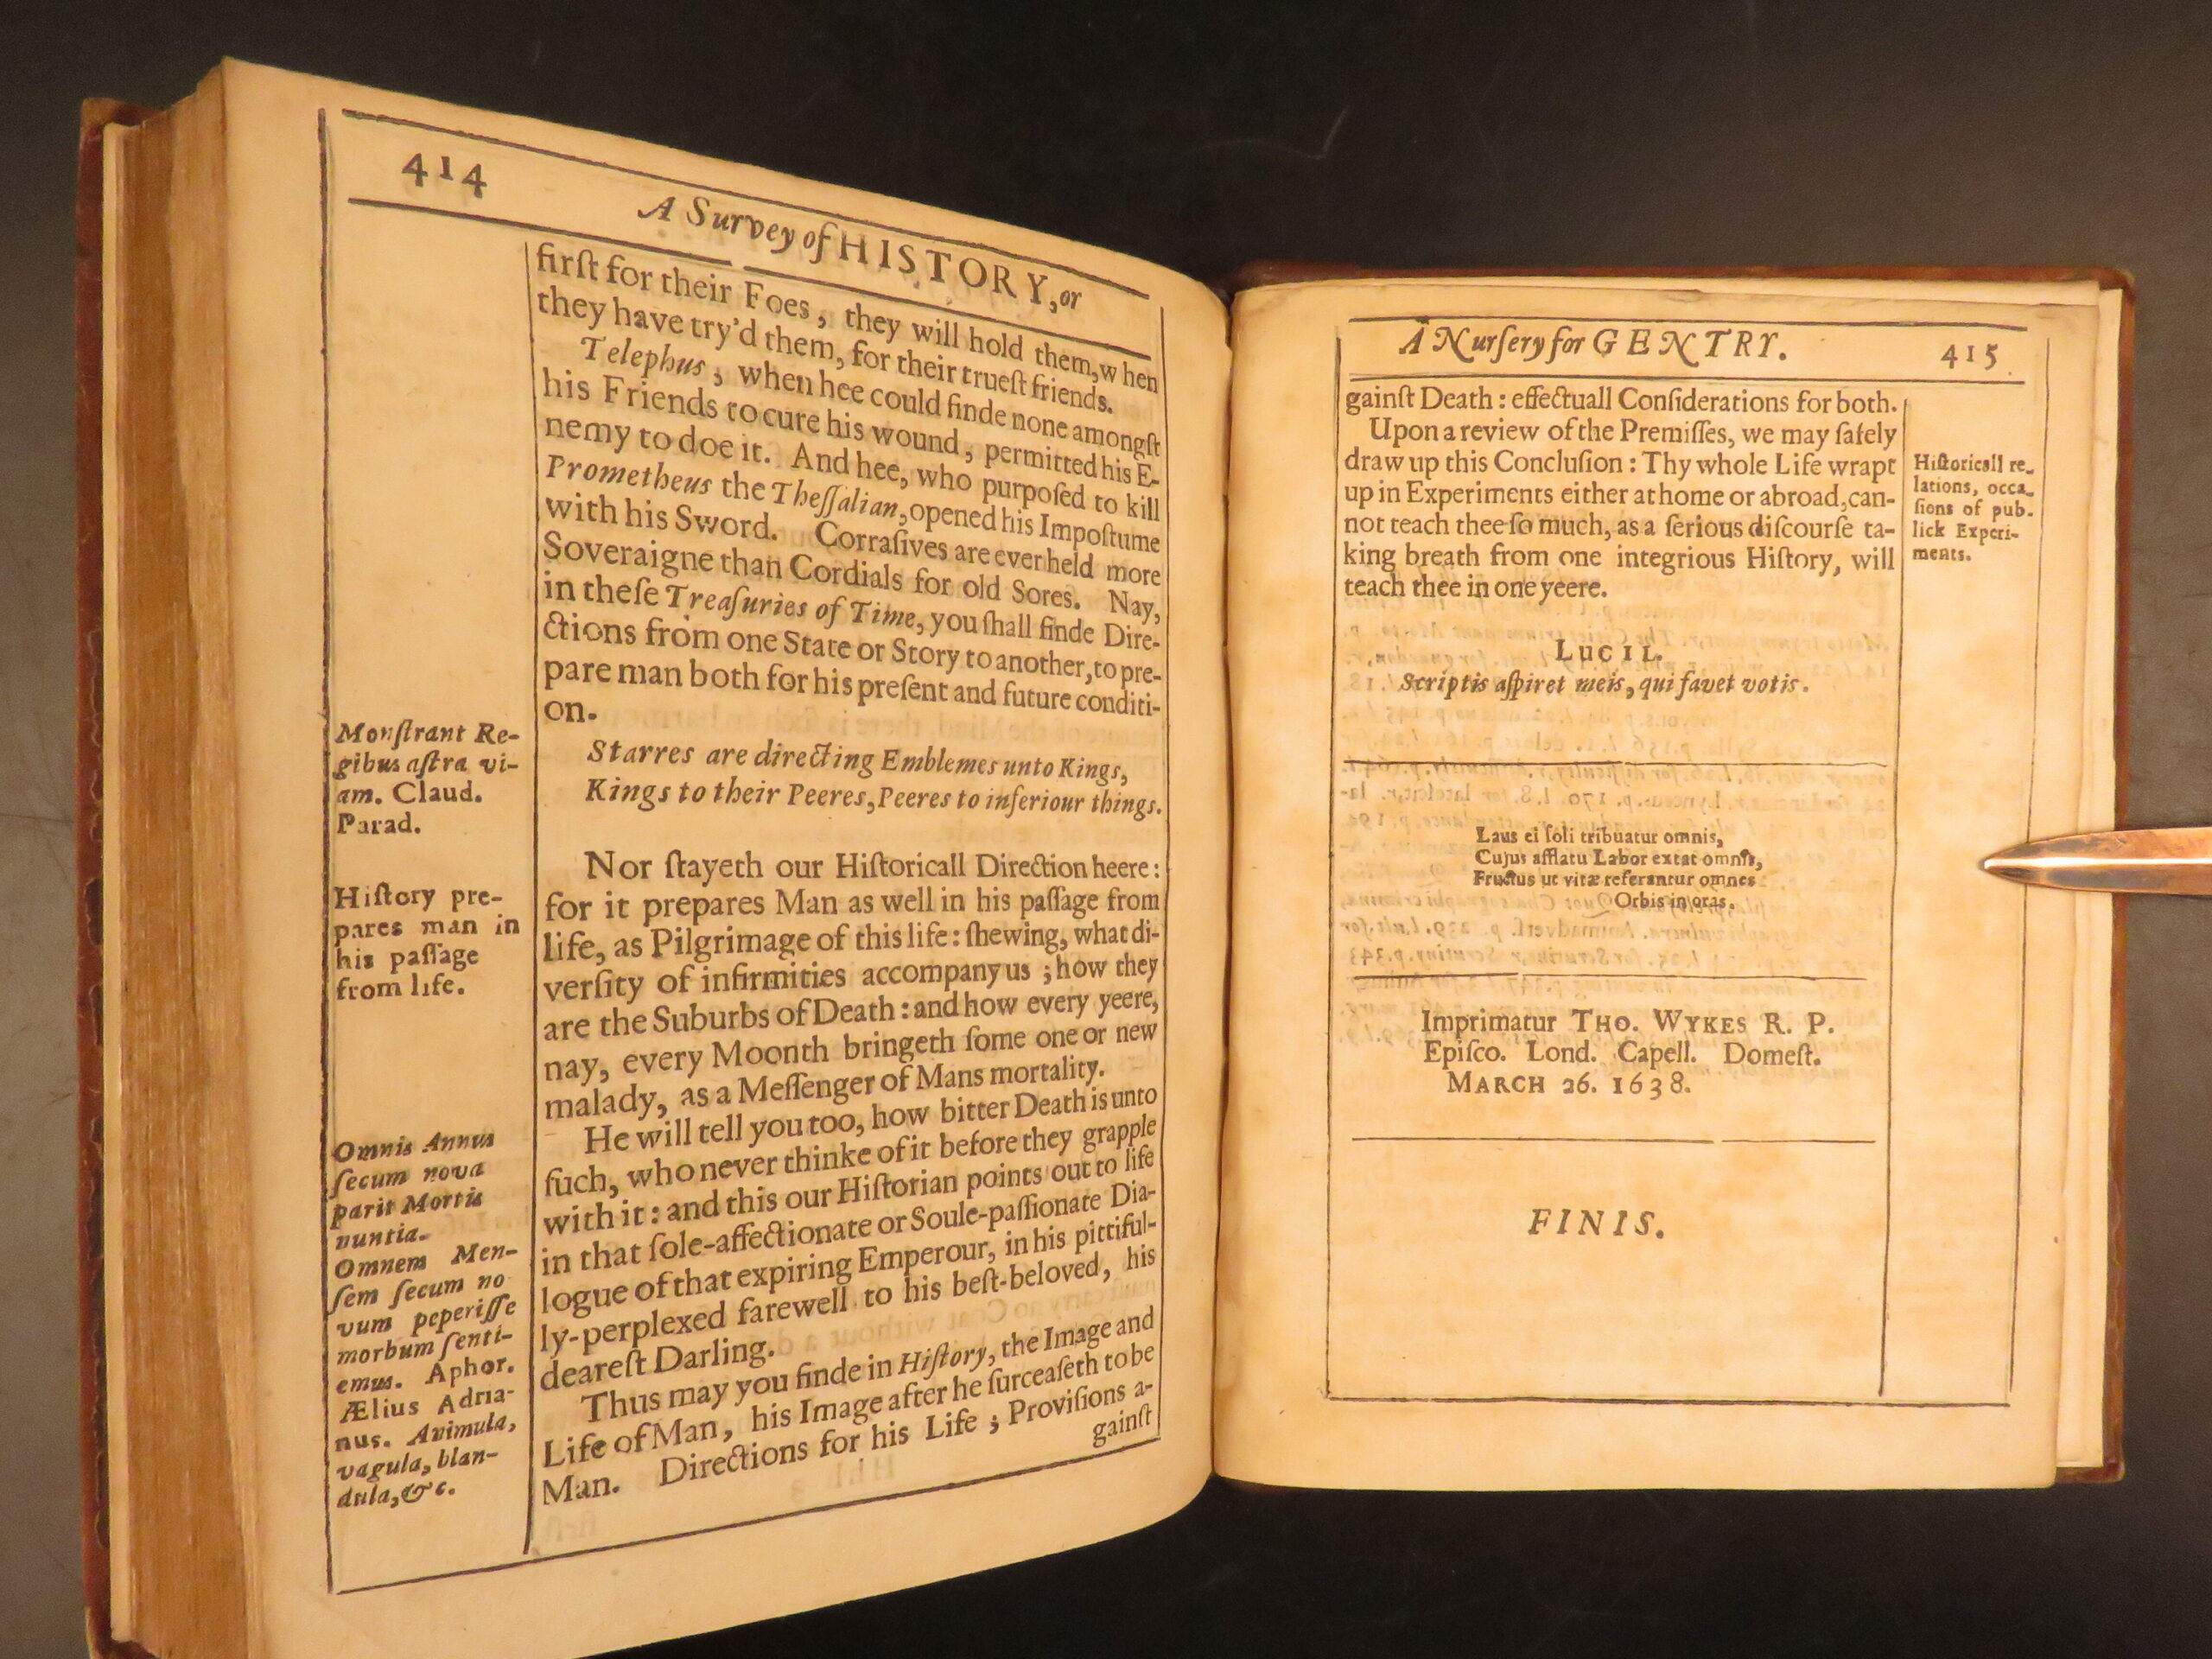 414
A Survey of HISTORY, or
firſt for their Foes, they will hold them, when
they have try'd them, for their trueſt friends.
Telephus, when hee could finde none amongſt
his Friends to cure his wound, permitted his E-
nemy to doe it. And hee, who purpoſed to kill
Prometheus the Theſſalian, opened his Impoſtume
with his Sword. Corraſives are ever held more
Soveraigne than Cordials for old Sores. Nay,
in theſe Treaſuries of Time, you ſhall finde Dire-
ctions from one State or Story to another, to pre-
pare man both for his preſent and future conditi-
on.
Monſtrant Re-
gibus aſtra vi-
am. Claud.
Parad.
Starres are directing Emblemes unto Kings,
Kings to their Peeres, Peeres to inferiour things.
History pre-
pares man in
his paſſage
from life.
Nor ſtayeth our Hiſtoricall Direction heere:
for it prepares Man as well in his paſſage from
life, as Pilgrimage of this life: ſhewing, what di-
verſity of infirmities accompany us; how they
are the Suburbs of Death: and how every yeere,
nay, every Moonth bringeth ſome one or new
malady, as a Meſſenger of Mans mortality.
Omnis Annus
ſecum nova
parit Mortis
nuntia.
Omnem Men-
ſem ſecum no
vum peperiſſe
morbum ſenti-
emus. Aphor.
Ælius Adria-
nus. Animula,
vagula, blan-
dula, &c.
He will tell you too, how bitter Death is unto
ſuch, who never thinke of it before they grapple
with it: and this our Hiſtorian points out to life
in that ſole-affectionate or Soule-paſſionate Dia-
logue of that expiring Emperour, in his pittiful-
ly-perplexed farewell to his beſt-beloved, his
deareſt Darling.
Thus may you finde in Hiſtory, the Image and
Life of Man, his Image after he ſurceaſeth to be
Man. Directions for his Life; Proviſions a-
gainſt
A Nurſery for GENTRY.
415
gainſt Death: effectuall Conſiderations for both.
Upon a review of the Premiſſes, we may ſafely
draw up this Concluſion: Thy whole Life wrapt
up in Experiments either at home or abroad, can-
not teach thee ſo much, as a ſerious diſcourſe ta-
king breath from one integrious Hiſtory, will
teach thee in one yeere.
Hiſtoricall re-
lations, occa-
ſions of pub-
lick Experi-
ments.
LUCIL.
Scriptis aſpiret meis, qui favet votis.
Laus ei ſoli tribuatur omnis,
Cujus afflatu Labor extat omnis,
Fructus ut vitæ referantur omnes
Orbis in oras.
Imprimatur THO. WYKES R. P.
Epiſco. Lond. Capell. Domeſt.
MARCH 26. 1638.
FINIS.